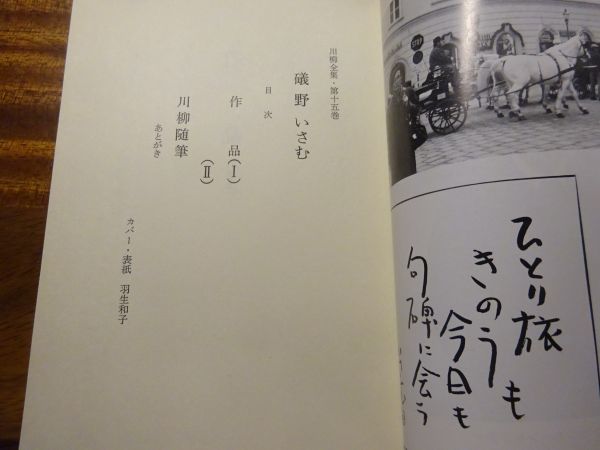 ひとり旅も
きのう
今日も
句碑に会う
川柳全集・第十五巻
礒野いさむ
目次
作品(Ⅰ)
(Ⅱ)
川柳随筆
あとがき
カバー・表紙 羽生和子